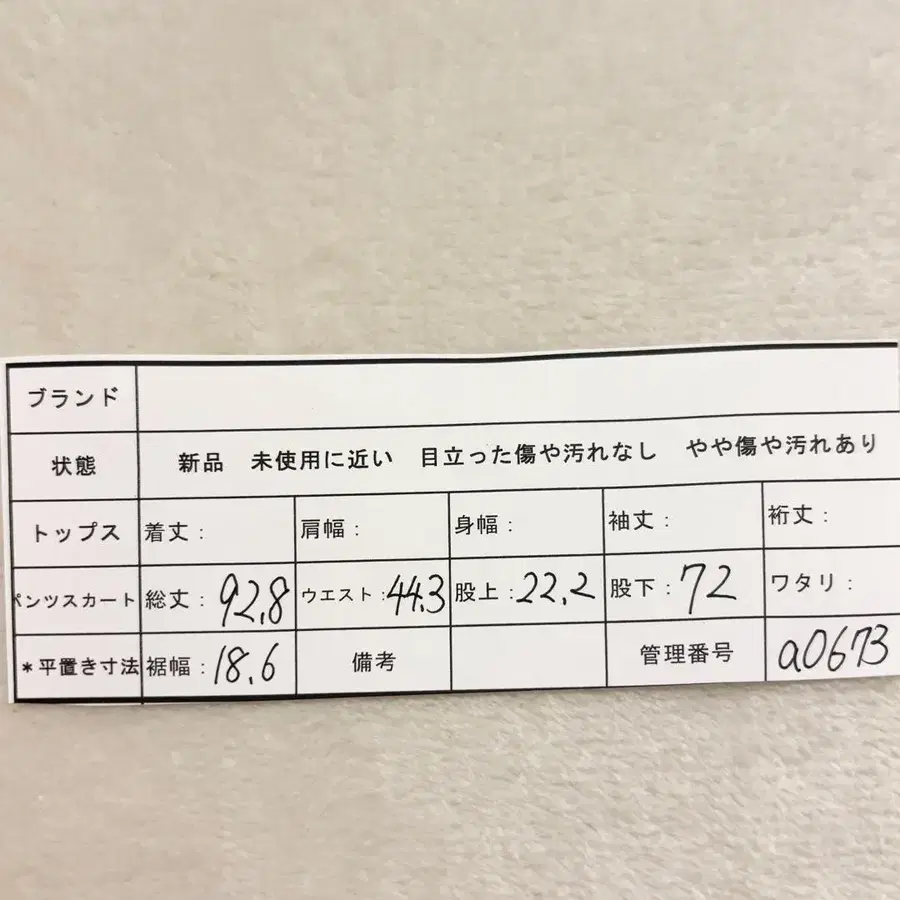 ブランド
状態 新品 未使用に近い 目立った傷や汚れなし やや傷や汚れあり
トップス 着丈: 肩幅: 身幅: 袖丈: 裄丈:
パンツスカート 総丈:92.8 ウエスト:44.3 股上:22.2 股下:72 ワタリ:
*平置き寸法 裾幅:18.6 備考 管理番号 a0673